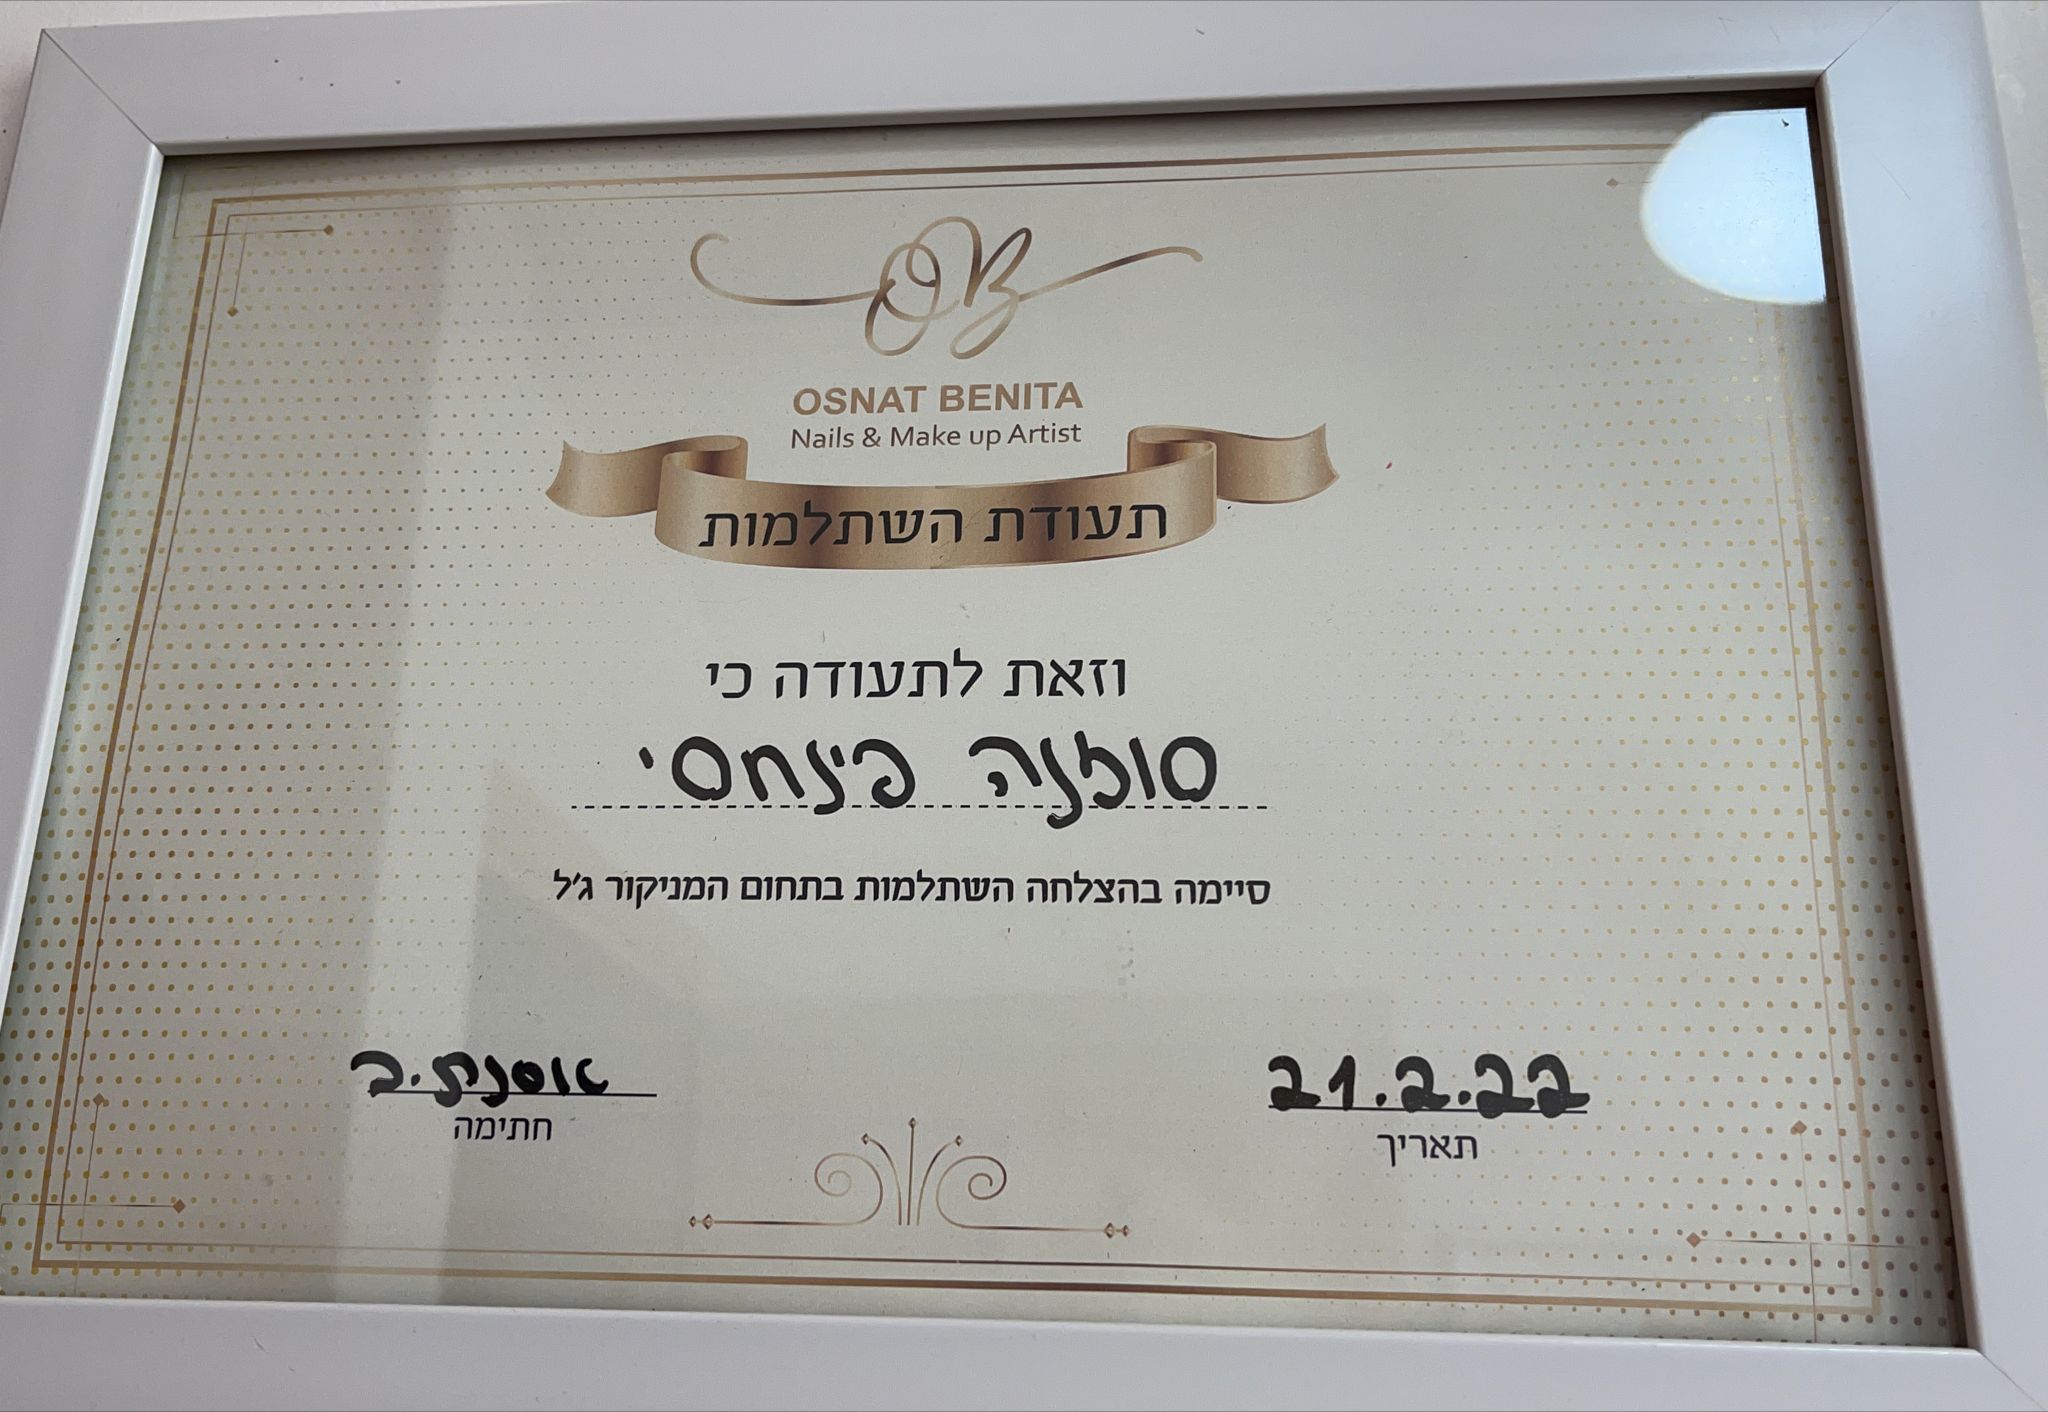 OB
OSNAT BENITA
Nails & Make up Artist
תעודת השתלמות
וזאת לתעודה כי
סוזנה פינחסי
סיימה בהצלחה השתלמות בתחום המניקור ג'ל
21.2.22
תאריך
אוסנת.ב
חתימה